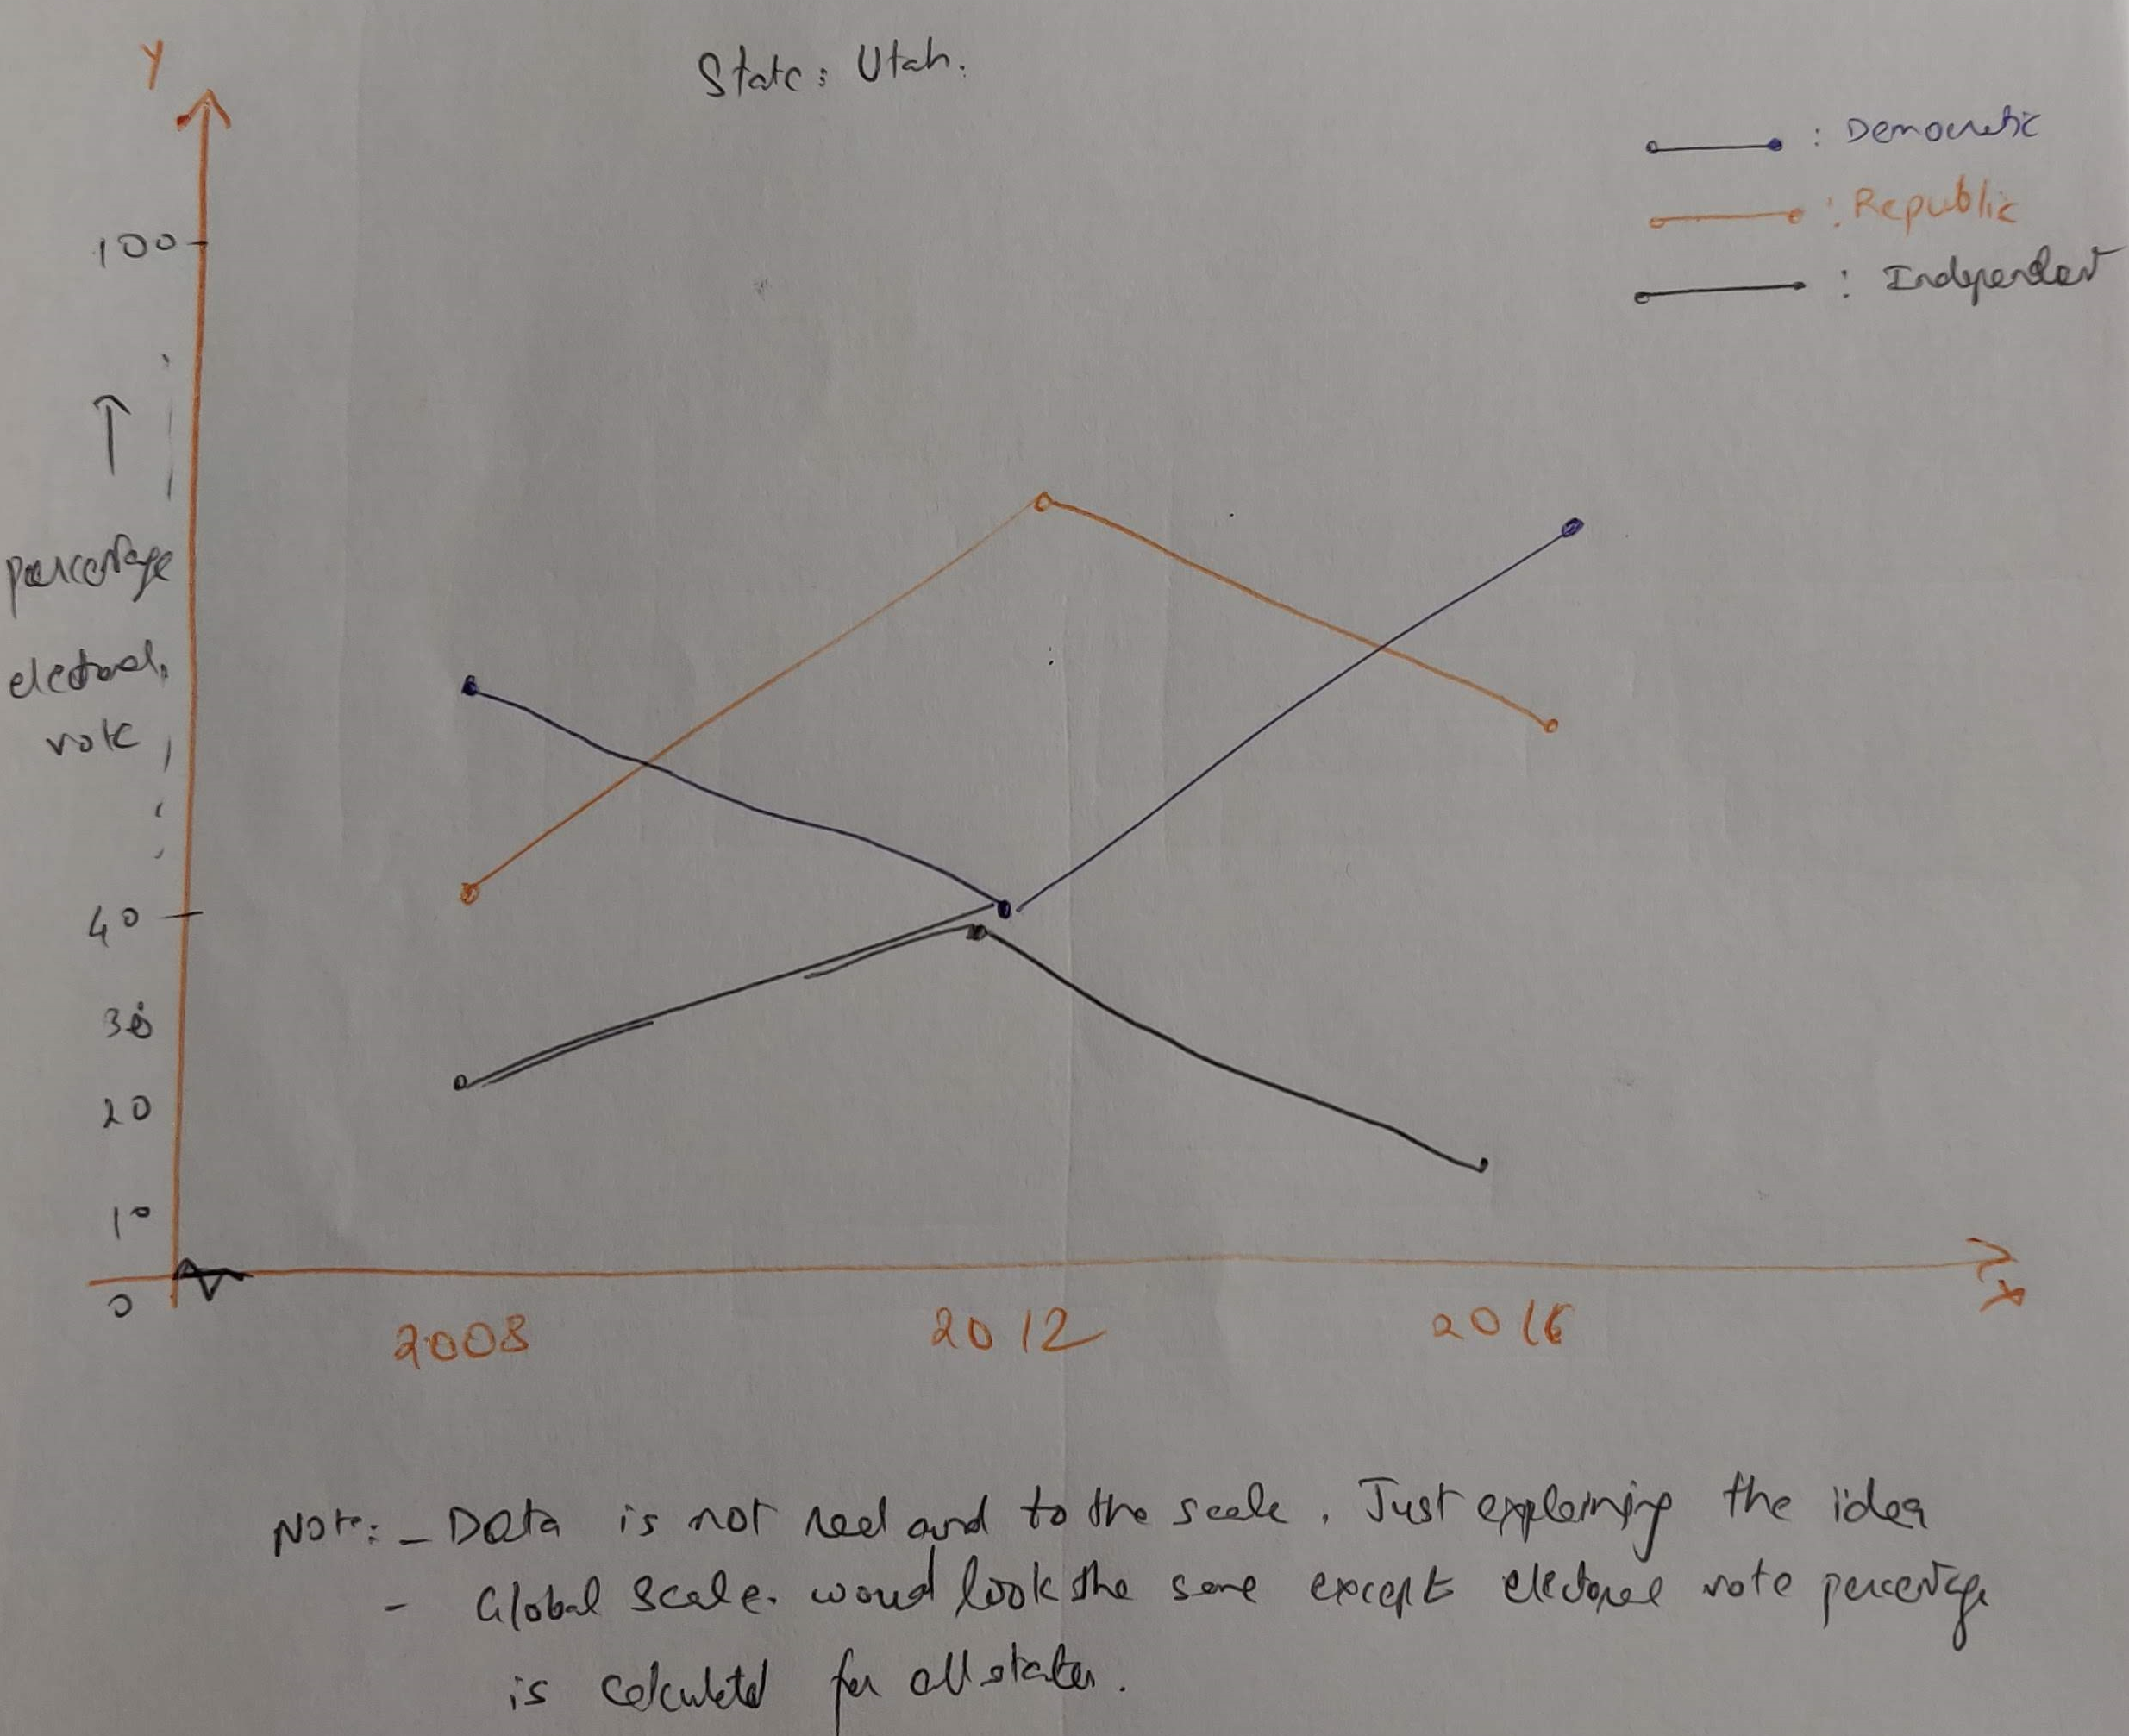 Y
State: Utah.
: Democratic
: Republic
: Independent
100
percentage
electoral
vote
40
30
20
10
0
2008 2012 2016
X
Note: - Data is not real and to the scale. Just explaining the idea
- Global Scale. would look the same except electoral vote percentage
is calculated for all states.